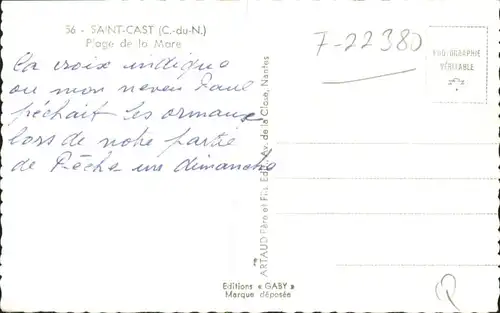 56 - SAINT-CAST (C.-du-N.)
Plage de la Mare
la croix indique
ou mon neveu Paul
pêchait les ormaux
lors de notre partie
de Pêche un dimanche
7-22380
PHOTOGRAPHIE
VÉRITABLE
ARTAUD Père et Fils Edit., Av. de la Close, Nantes
Editions « GABY »
Marque déposée